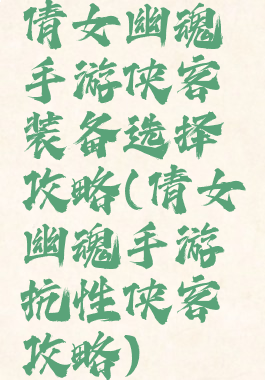 倩女幽魂
手游侠客
装备选择
攻略(倩女
幽魂手游
抗性侠客
攻略)